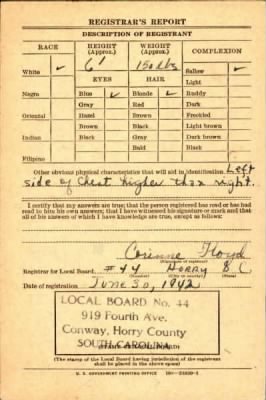 REGISTRAR'S REPORT
DESCRIPTION OF REGISTRANT
RACE HEIGHT (Approx.) WEIGHT (Approx.) COMPLEXION
White ✓ 6' 150 lbs Sallow ✓
EYES HAIR Light
Negro Blue ✓ Blonde ✓ Ruddy
Gray Red Dark
Oriental Hazel Brown Freckled
Brown Black Light brown
Indian Black Gray Dark brown
Bald Black
Filipino
Other obvious physical characteristics that will aid in identification Left
side of Chest higher than right.
I certify that my answers are true; that the person registered has read or has had
read to him his own answers; that I have witnessed his signature or mark and that
all of his answers of which I have knowledge are true, except as follows:
Corinne Floyd
(Signature of registrar)
Registrar for Local Board #44 Horry S C
(Number) (City or county) (State)
Date of registration June 30, 1942
LOCAL BOARD No. 44
919 Fourth Ave.
Conway, Horry County
SOUTH CAROLINA
(The stamp of the Local Board having jurisdiction of the registrant
shall be placed in the above space.)
U. S. GOVERNMENT PRINTING OFFICE